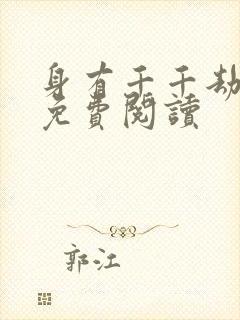 身有千千劫
免費閱讀
郭江